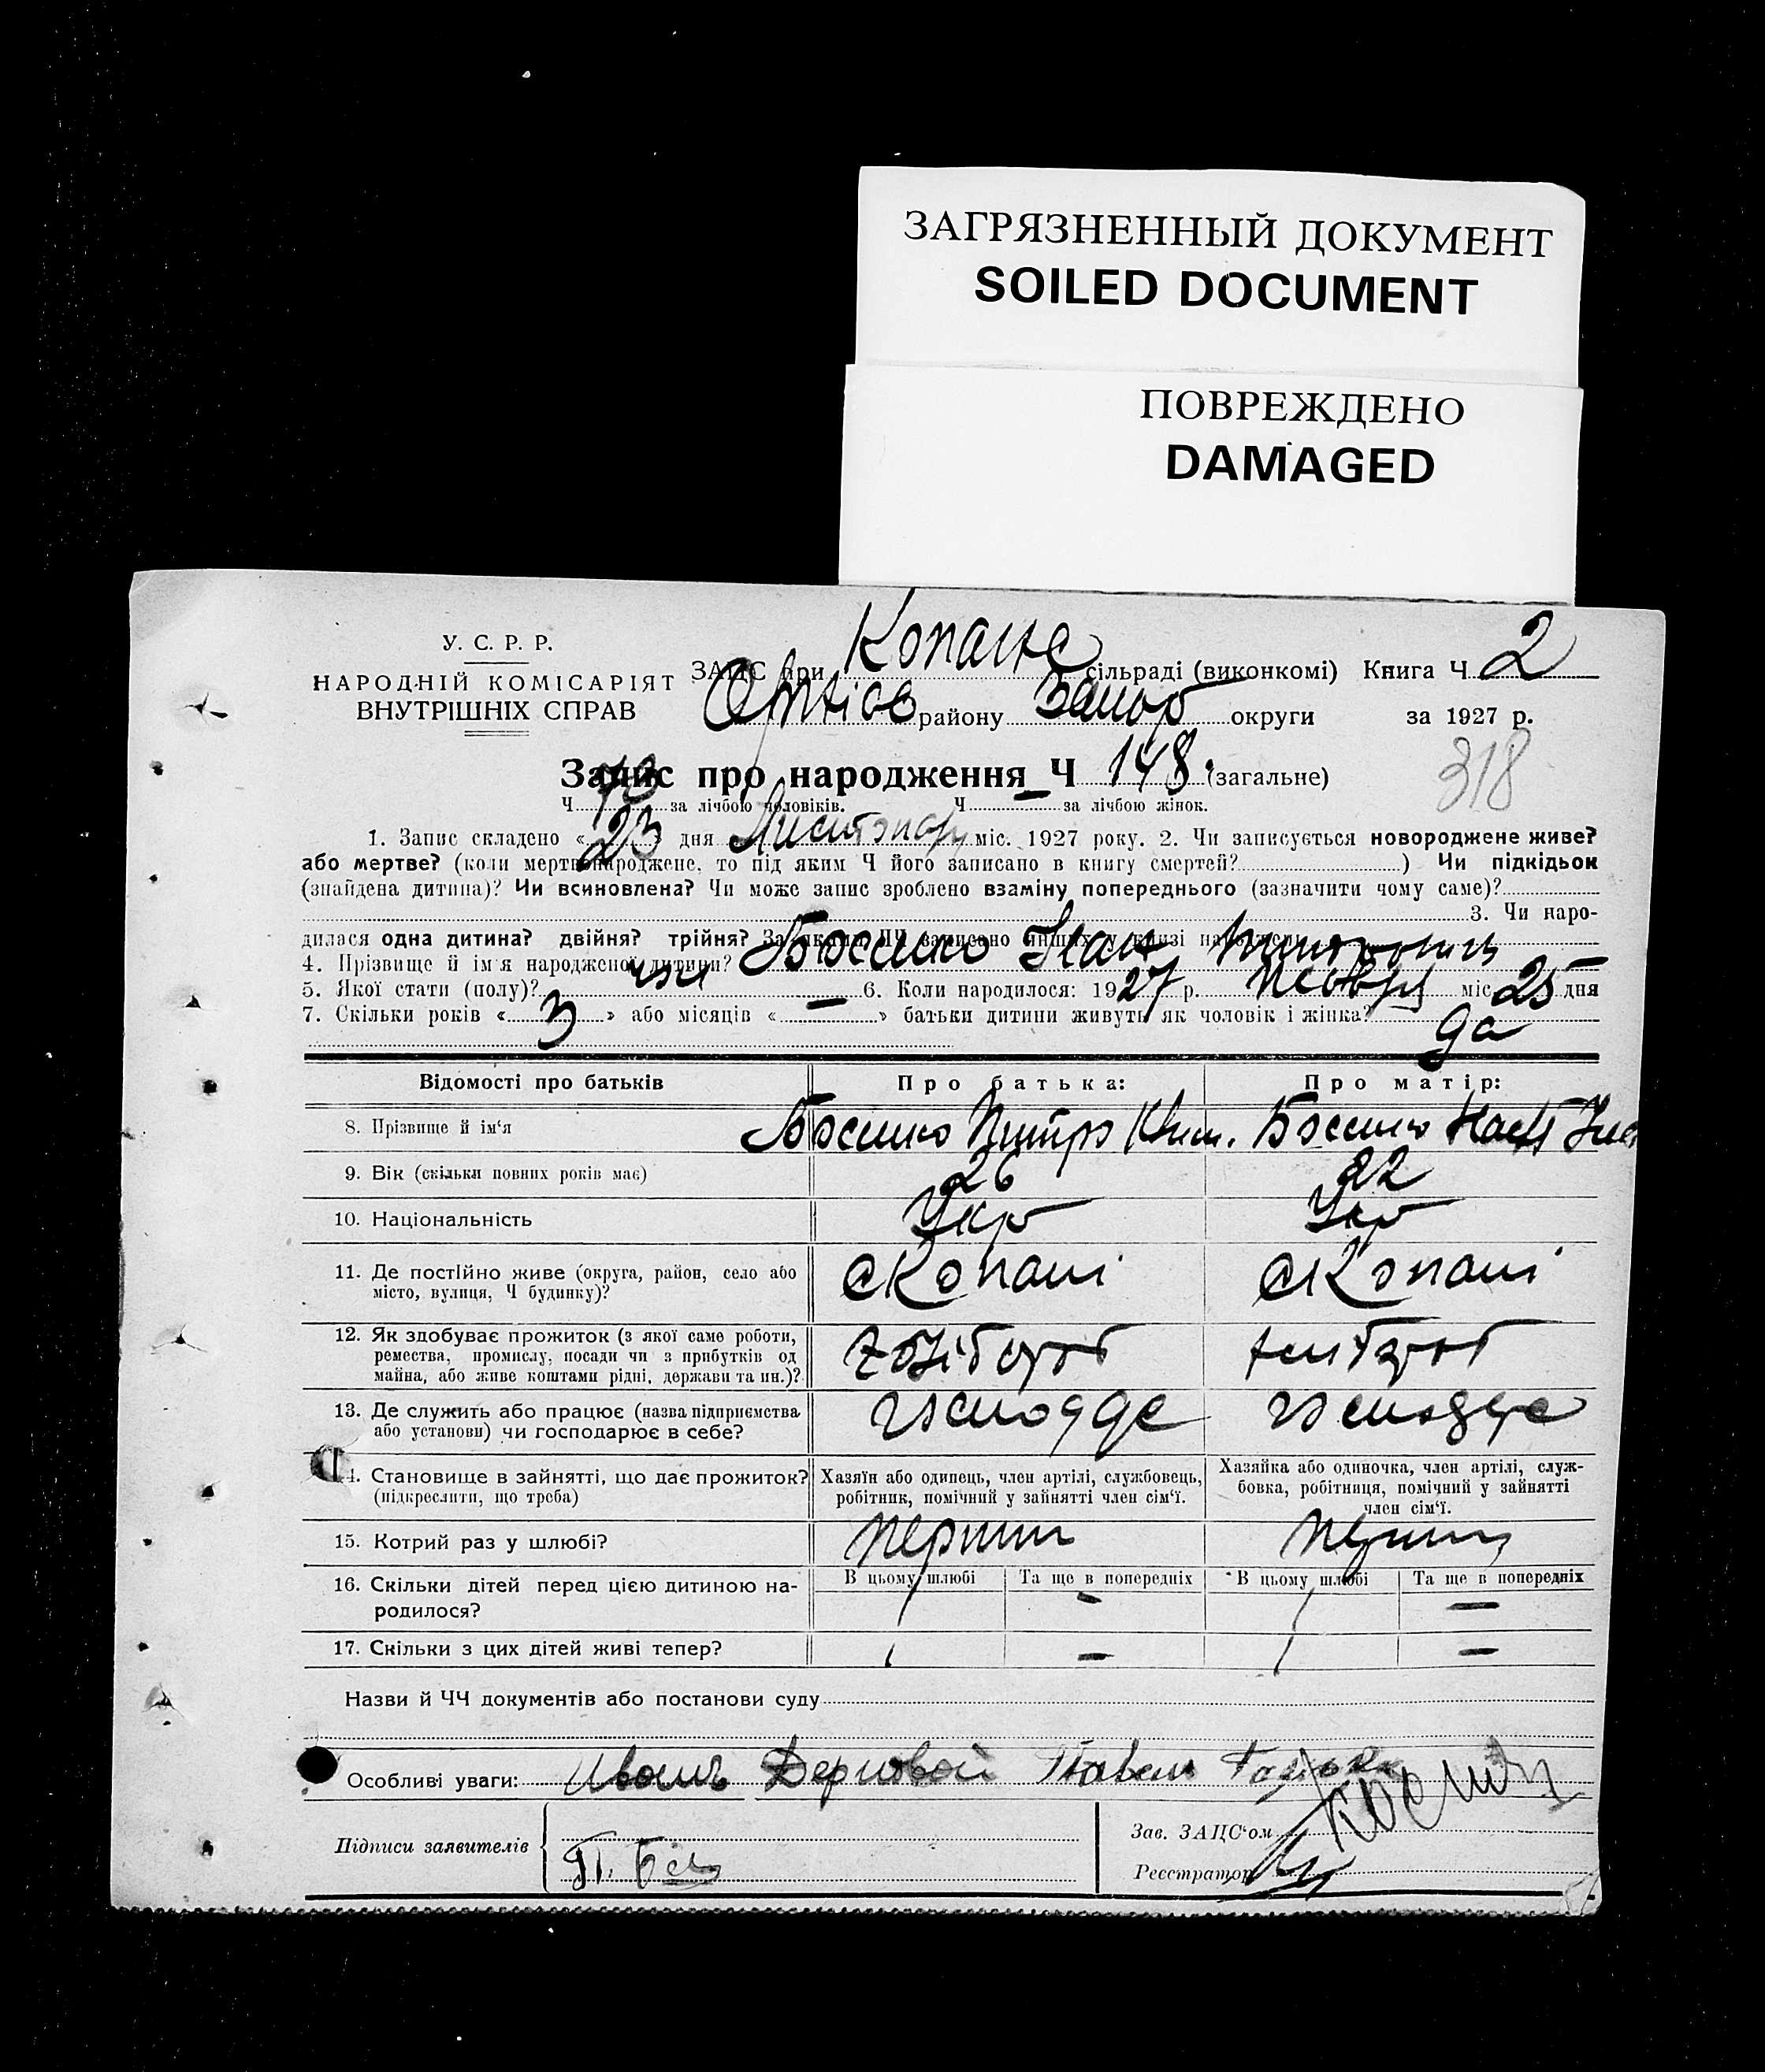 ЗАГРЯЗНЕННЫЙ ДОКУМЕНТ
SOILED DOCUMENT
ПОВРЕЖДЕНО
DAMAGED
У. С. Р. Р.
НАРОДНІЙ КОМІСАРІЯТ
ВНУТРІШНІХ СПРАВ
ЗАЦС при Копане сільраді (виконкомі) Книга Ч 2
району Запор округи за 1927 р.
Запис про народження Ч 148. (загальне)
318
Ч 70 за лічбою чоловіків. Ч — за лічбою жінок.
1. Запис складено « 23 » дня Листопаду міс. 1927 року. 2. Чи записується новороджене живе?
або мертве? (коли мертвонароджене, то під яким Ч його записано в книгу смертей? ) Чи підкідьок
(знайдена дитина)? Чи всиновлена? Чи може запис зроблено взаміну попереднього (зазначити чому саме)?
3. Чи наро-
дилася одна дитина? двійня? трійня? За якими ЧЧ записано инших у книзі народжень
4. Прізвище й ім'я народженої дитини? Іван
5. Якої стати (полу)? чол — 6. Коли народилося: 1927 р. міс. 25 дня
7. Скільки років « 3 » або місяців « — » батьки дитини живуть як чоловік і жінка? да
Відомості про батьків Про батька: Про матір:
8. Прізвище й ім'я Петро
9. Вік (скільки повних років має) 26 22
10. Національність Укр Укр
11. Де постійно живе (округа, район, село або с Копані с Копані
місто, вулиця, Ч будинку)?
12. Як здобуває прожиток (з якої саме роботи, хлібороб
ремества, промислу, посади чи з прибутків од
майна, або живе коштами рідні, держави та ин.)?
13. Де служить або працює (назва підприємства
або установи) чи господарює в себе?
14. Становище в зайнятті, що дає прожиток? Хазяїн або одинець, член артілі, службовець, Хазяйка або одиночка, член артілі, служ-
(підкреслити, що треба) робітник, помічний у зайнятті член сім'ї. бовка, робітниця, помічний у зайнятті
член сім'ї.
15. Котрий раз у шлюбі? перший
16. Скільки дітей перед цією дитиною на- В цьому шлюбі Та ще в попередніх В цьому шлюбі Та ще в попередніх
родилося? 1 — 1 —
17. Скільки з цих дітей живі тепер? 1 — 1 —
Назви й ЧЧ документів або постанови суду
Особливі уваги: Иванъ Дерновой Павел
Підписи заявителів
Зав. ЗАЦС'ом
П.
Реєстратор